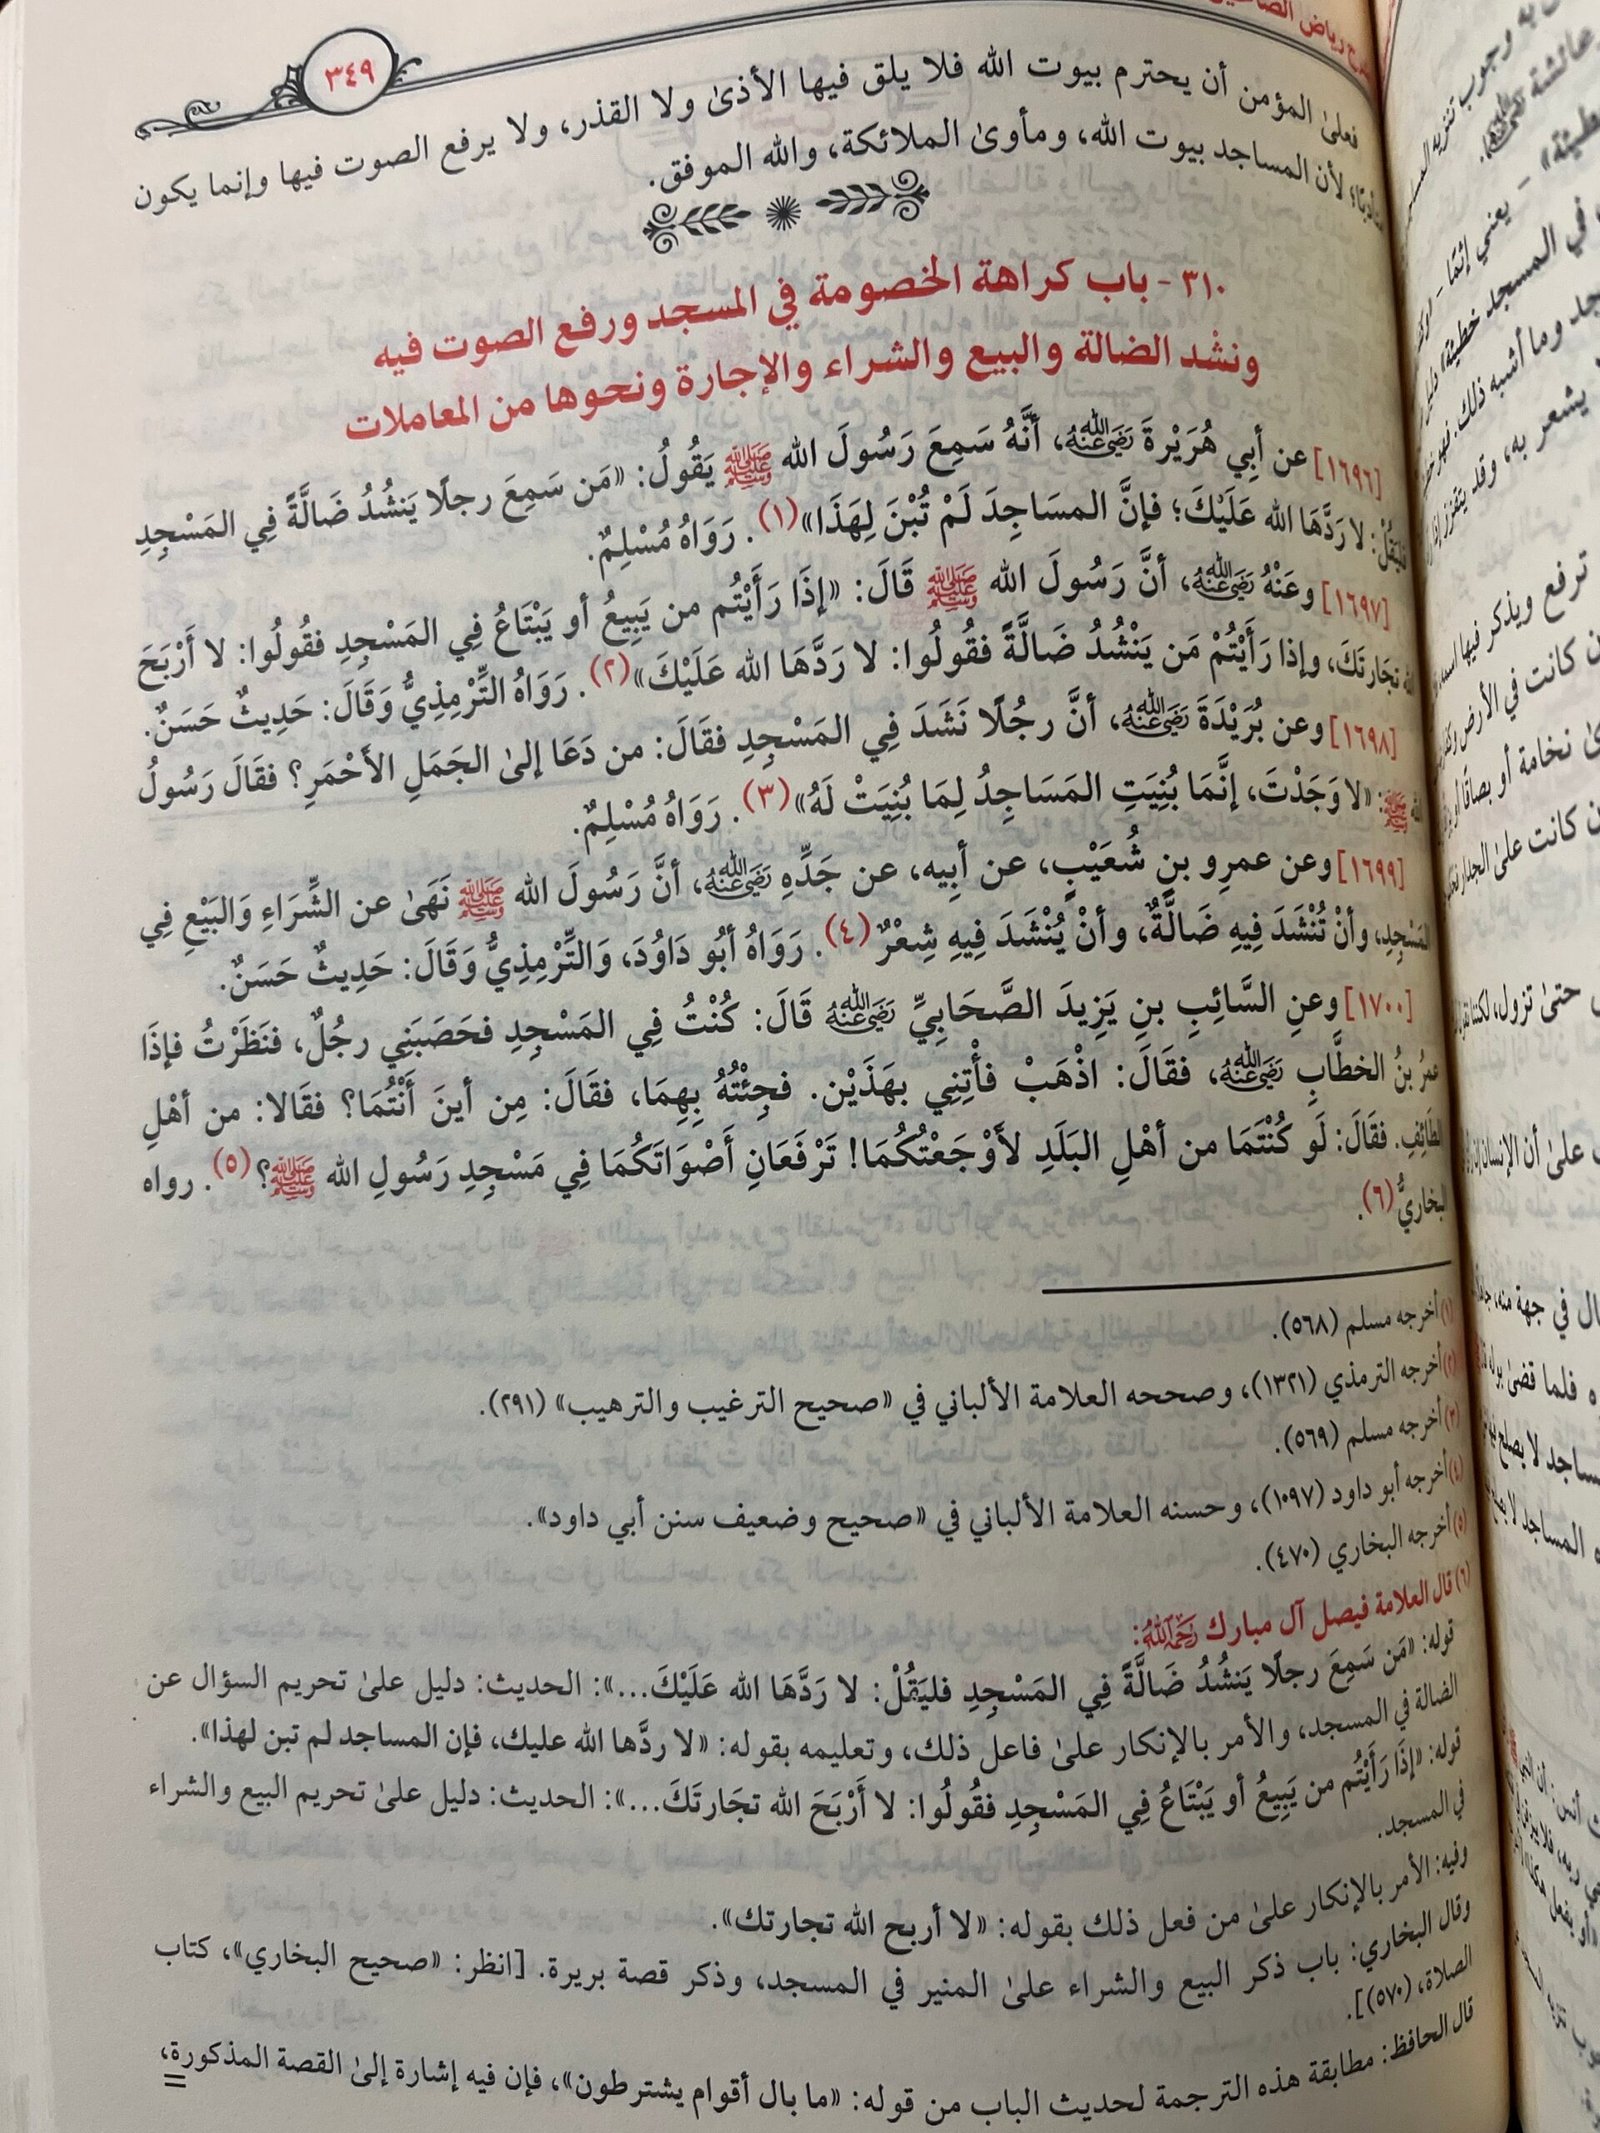 شرح رياض الصالحين
٣٤٩
فعلىٰ المؤمن أن يحترم بيوت الله فلا يلق فيها الأذىٰ ولا القذر، ولا يرفع الصوت فيها وإنما يكون
لأن المساجد بيوت الله، ومأوىٰ الملائكة، والله الموفق.
٣١٠ - باب كراهة الخصومة في المسجد ورفع الصوت فيه
ونشد الضالة والبيع والشراء والإجارة ونحوها من المعاملات
[١٦٩٦] عن أبِي هُرَيْرةَ رَضِيَ اللَّهُ عَنْهُ، أنَّهُ سَمِعَ رَسُولَ الله ﷺ يَقُولُ: «مَن سَمِعَ رجلًا يَنشُدُ ضَالَّةً فِي المَسْجِدِ
فليَقُلْ: لا رَدَّهَا الله عَلَيْكَ؛ فإنَّ المسَاجِدَ لَمْ تُبْنَ لِهَذَا»(١). رَوَاهُ مُسْلِمٌ.
[١٦٩٧] وعَنْهُ رَضِيَ اللَّهُ عَنْهُ، أنَّ رَسُولَ الله ﷺ قَالَ: «إذَا رَأَيْتُم من يَبِيعُ أو يَبْتَاعُ فِي المَسْجِدِ فقُولُوا: لا أَرْبَحَ
الله تجَارتَكَ، وإذا رَأَيْتُمْ مَن يَنْشُدُ ضَالَّةً فقُولُوا: لا رَدَّهَا الله عَلَيْكَ»(٢). رَوَاهُ التِّرْمِذِيُّ وَقَالَ: حَدِيثٌ حَسَنٌ.
[١٦٩٨] وعن بُرَيْدَةَ رَضِيَ اللَّهُ عَنْهُ، أنَّ رجُلًا نَشَدَ فِي المَسْجِدِ فقَالَ: من دَعَا إلىٰ الجَمَلِ الأَحْمَرِ؟ فقَالَ رَسُولُ
الله ﷺ: «لا وَجَدْتَ، إنَّمَا بُنِيَتِ المَسَاجِدُ لِمَا بُنِيَتْ لَهُ»(٣). رَوَاهُ مُسْلِمٌ.
[١٦٩٩] وعن عمرِو بنِ شُعَيْبٍ، عن أبِيه، عن جَدِّهِ رَضِيَ اللَّهُ عَنْهُ، أنَّ رَسُولَ الله ﷺ نَهَىٰ عن الشِّرَاءِ وَالبَيْعِ فِي
المَسْجِدِ، وأنْ تُنْشَدَ فِيهِ ضَالَّةٌ، وأنْ يُنْشَدَ فِيهِ شِعْرٌ(٤). رَوَاهُ أبُو دَاوُدَ، وَالتِّرْمِذِيُّ وَقَالَ: حَدِيثٌ حَسَنٌ.
[١٧٠٠] وعنِ السَّائِبِ بنِ يَزِيدَ الصَّحَابِيِّ رَضِيَ اللَّهُ عَنْهُ قَالَ: كُنْتُ فِي المَسْجِدِ فحَصَبَنِي رجُلٌ، فنَظَرْتُ فإذَا
عمرُ بنُ الخطَّابِ رَضِيَ اللَّهُ عَنْهُ، فقَالَ: اذْهَبْ فأْتِنِي بهَذَيْن. فجِئْتُهُ بِهِمَا، فقَالَ: مِن أينَ أَنْتُمَا؟ فقَالا: من أهْلِ
الطَائِفِ. فقَالَ: لَو كُنْتَمَا من أهْلِ البَلَدِ لأَوْجَعْتُكُمَا! تَرْفَعَانِ أَصْوَاتَكُمَا فِي مَسْجِدِ رَسُولِ الله ﷺ؟ (٥). رواه
البخاريُّ(٦).
(١) أخرجه مسلم (٥٦٨).
(٢) أخرجه الترمذي (١٣٢١)، وصححه العلامة الألباني في «صحيح الترغيب والترهيب» (٢٩١).
(٣) أخرجه مسلم (٥٦٩).
(٤) أخرجه أبو داود (١٠٩٧)، وحسنه العلامة الألباني في «صحيح وضعيف سنن أبي داود».
(٥) أخرجه البخاري (٤٧٠).
(٦) قال العلامة فيصل آل مبارك رَحِمَهُ اللَّهُ:
قوله: «مَن سَمِعَ رجلًا يَنشُدُ ضَالَّةً فِي المَسْجِدِ فليَقُلْ: لا رَدَّهَا الله عَلَيْكَ...»: الحديث: دليل علىٰ تحريم السؤال عن
الضالة في المسجد، والأمر بالإنكار علىٰ فاعل ذلك، وتعليمه بقوله: «لا ردَّها الله عليك، فإن المساجد لم تبن لهذا».
قوله: «إذَا رَأَيْتُم من يَبِيعُ أو يَبْتَاعُ فِي المَسْجِدِ فقُولُوا: لا أَرْبَحَ الله تجَارتَكَ...»: الحديث: دليل علىٰ تحريم البيع والشراء
في المسجد.
وفيه: الأمر بالإنكار علىٰ من فعل ذلك بقوله: «لا أربح الله تجارتك».
وقال البخاري: باب ذكر البيع والشراء علىٰ المنير في المسجد، وذكر قصة بريرة. [انظر: «صحيح البخاري»، كتاب
الصلاة، (٥٧٠)].
قال الحافظ: مطابقة هذه الترجمة لحديث الباب من قوله: «ما بال أقوام يشترطون»، فإن فيه إشارة إلىٰ القصة المذكورة،
=